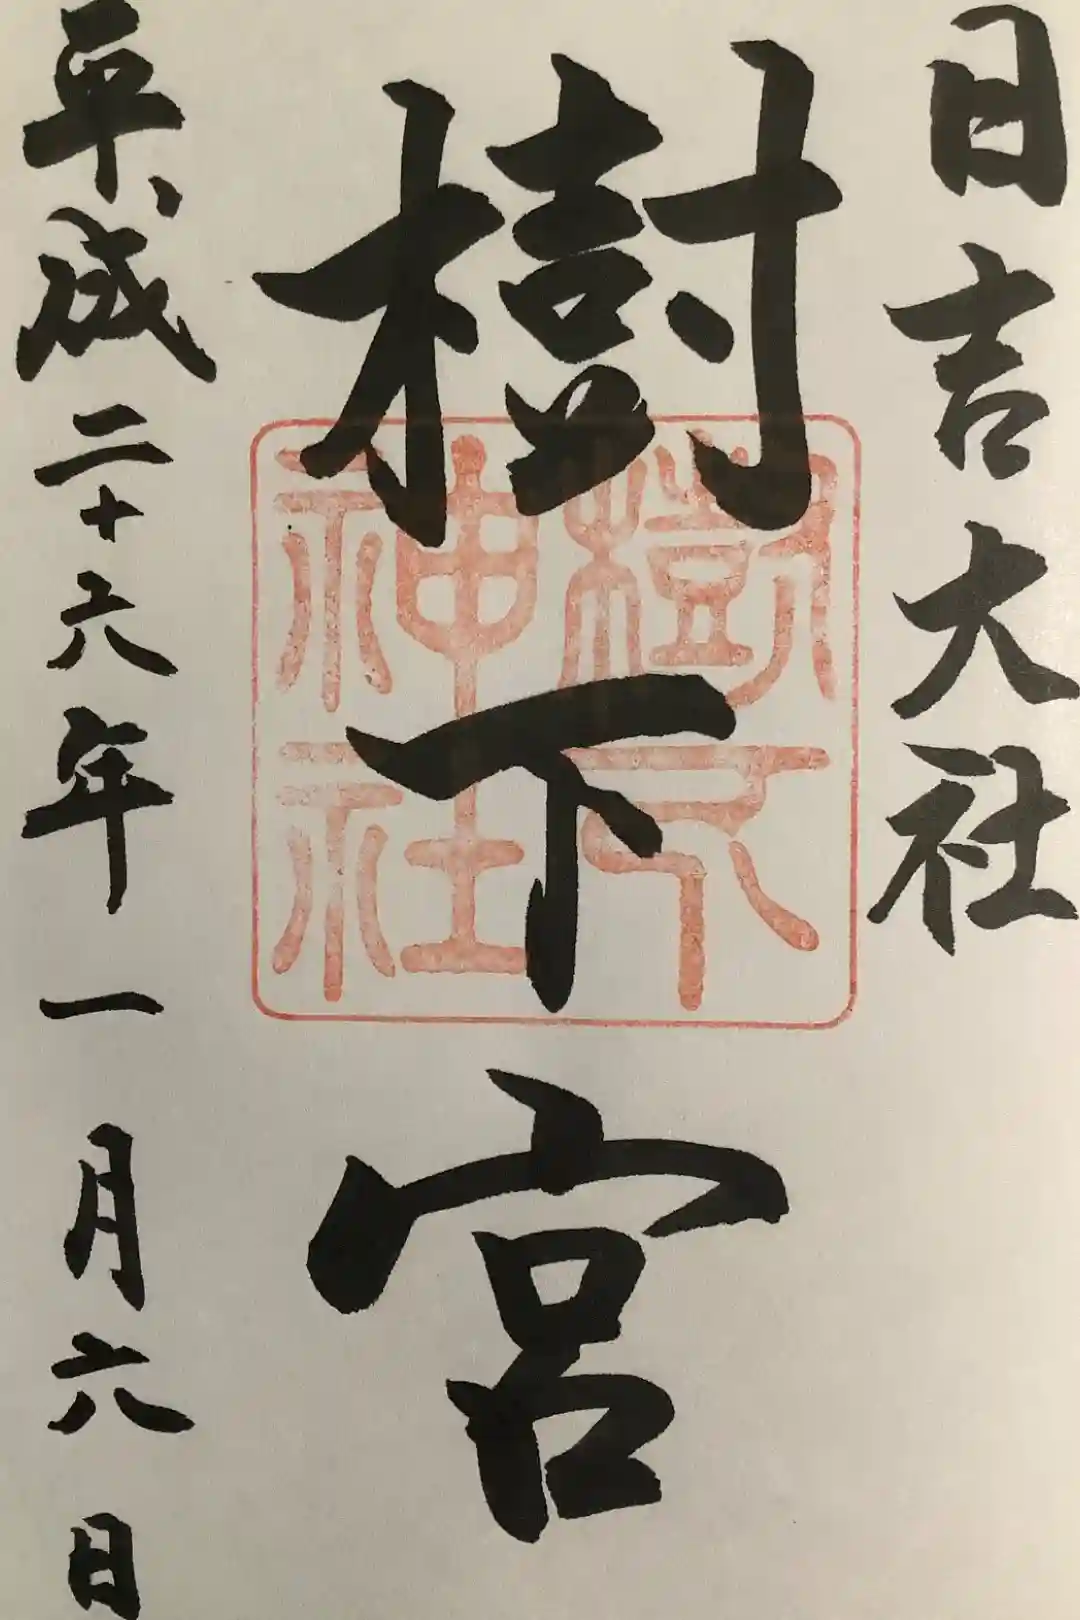 日吉大社
樹下宮
樹下神社
平成二十六年一月六日